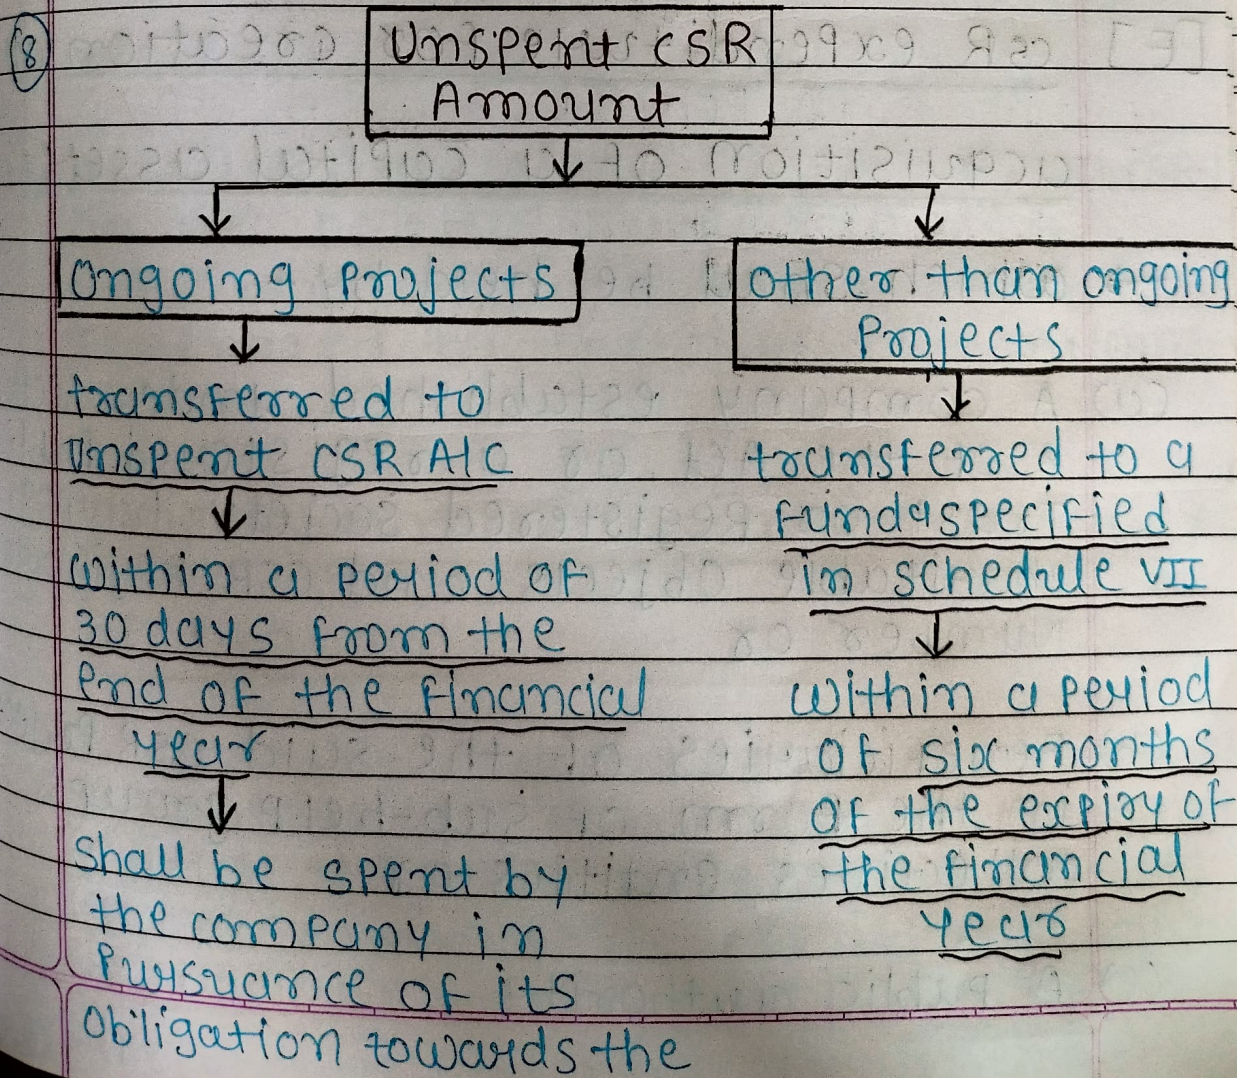 8
Unspent CSR
Amount
Ongoing Projects
transferred to
Unspent CSR A/C
within a period of
30 days from the
end of the financial
year
Shall be spent by
the company in
Pursuance of its
Obiligation towards the
Other than ongoing
Projects
transferred to a
fund as specified
in schedule VII
within a period
of six months
of the expiry of
the financial
year